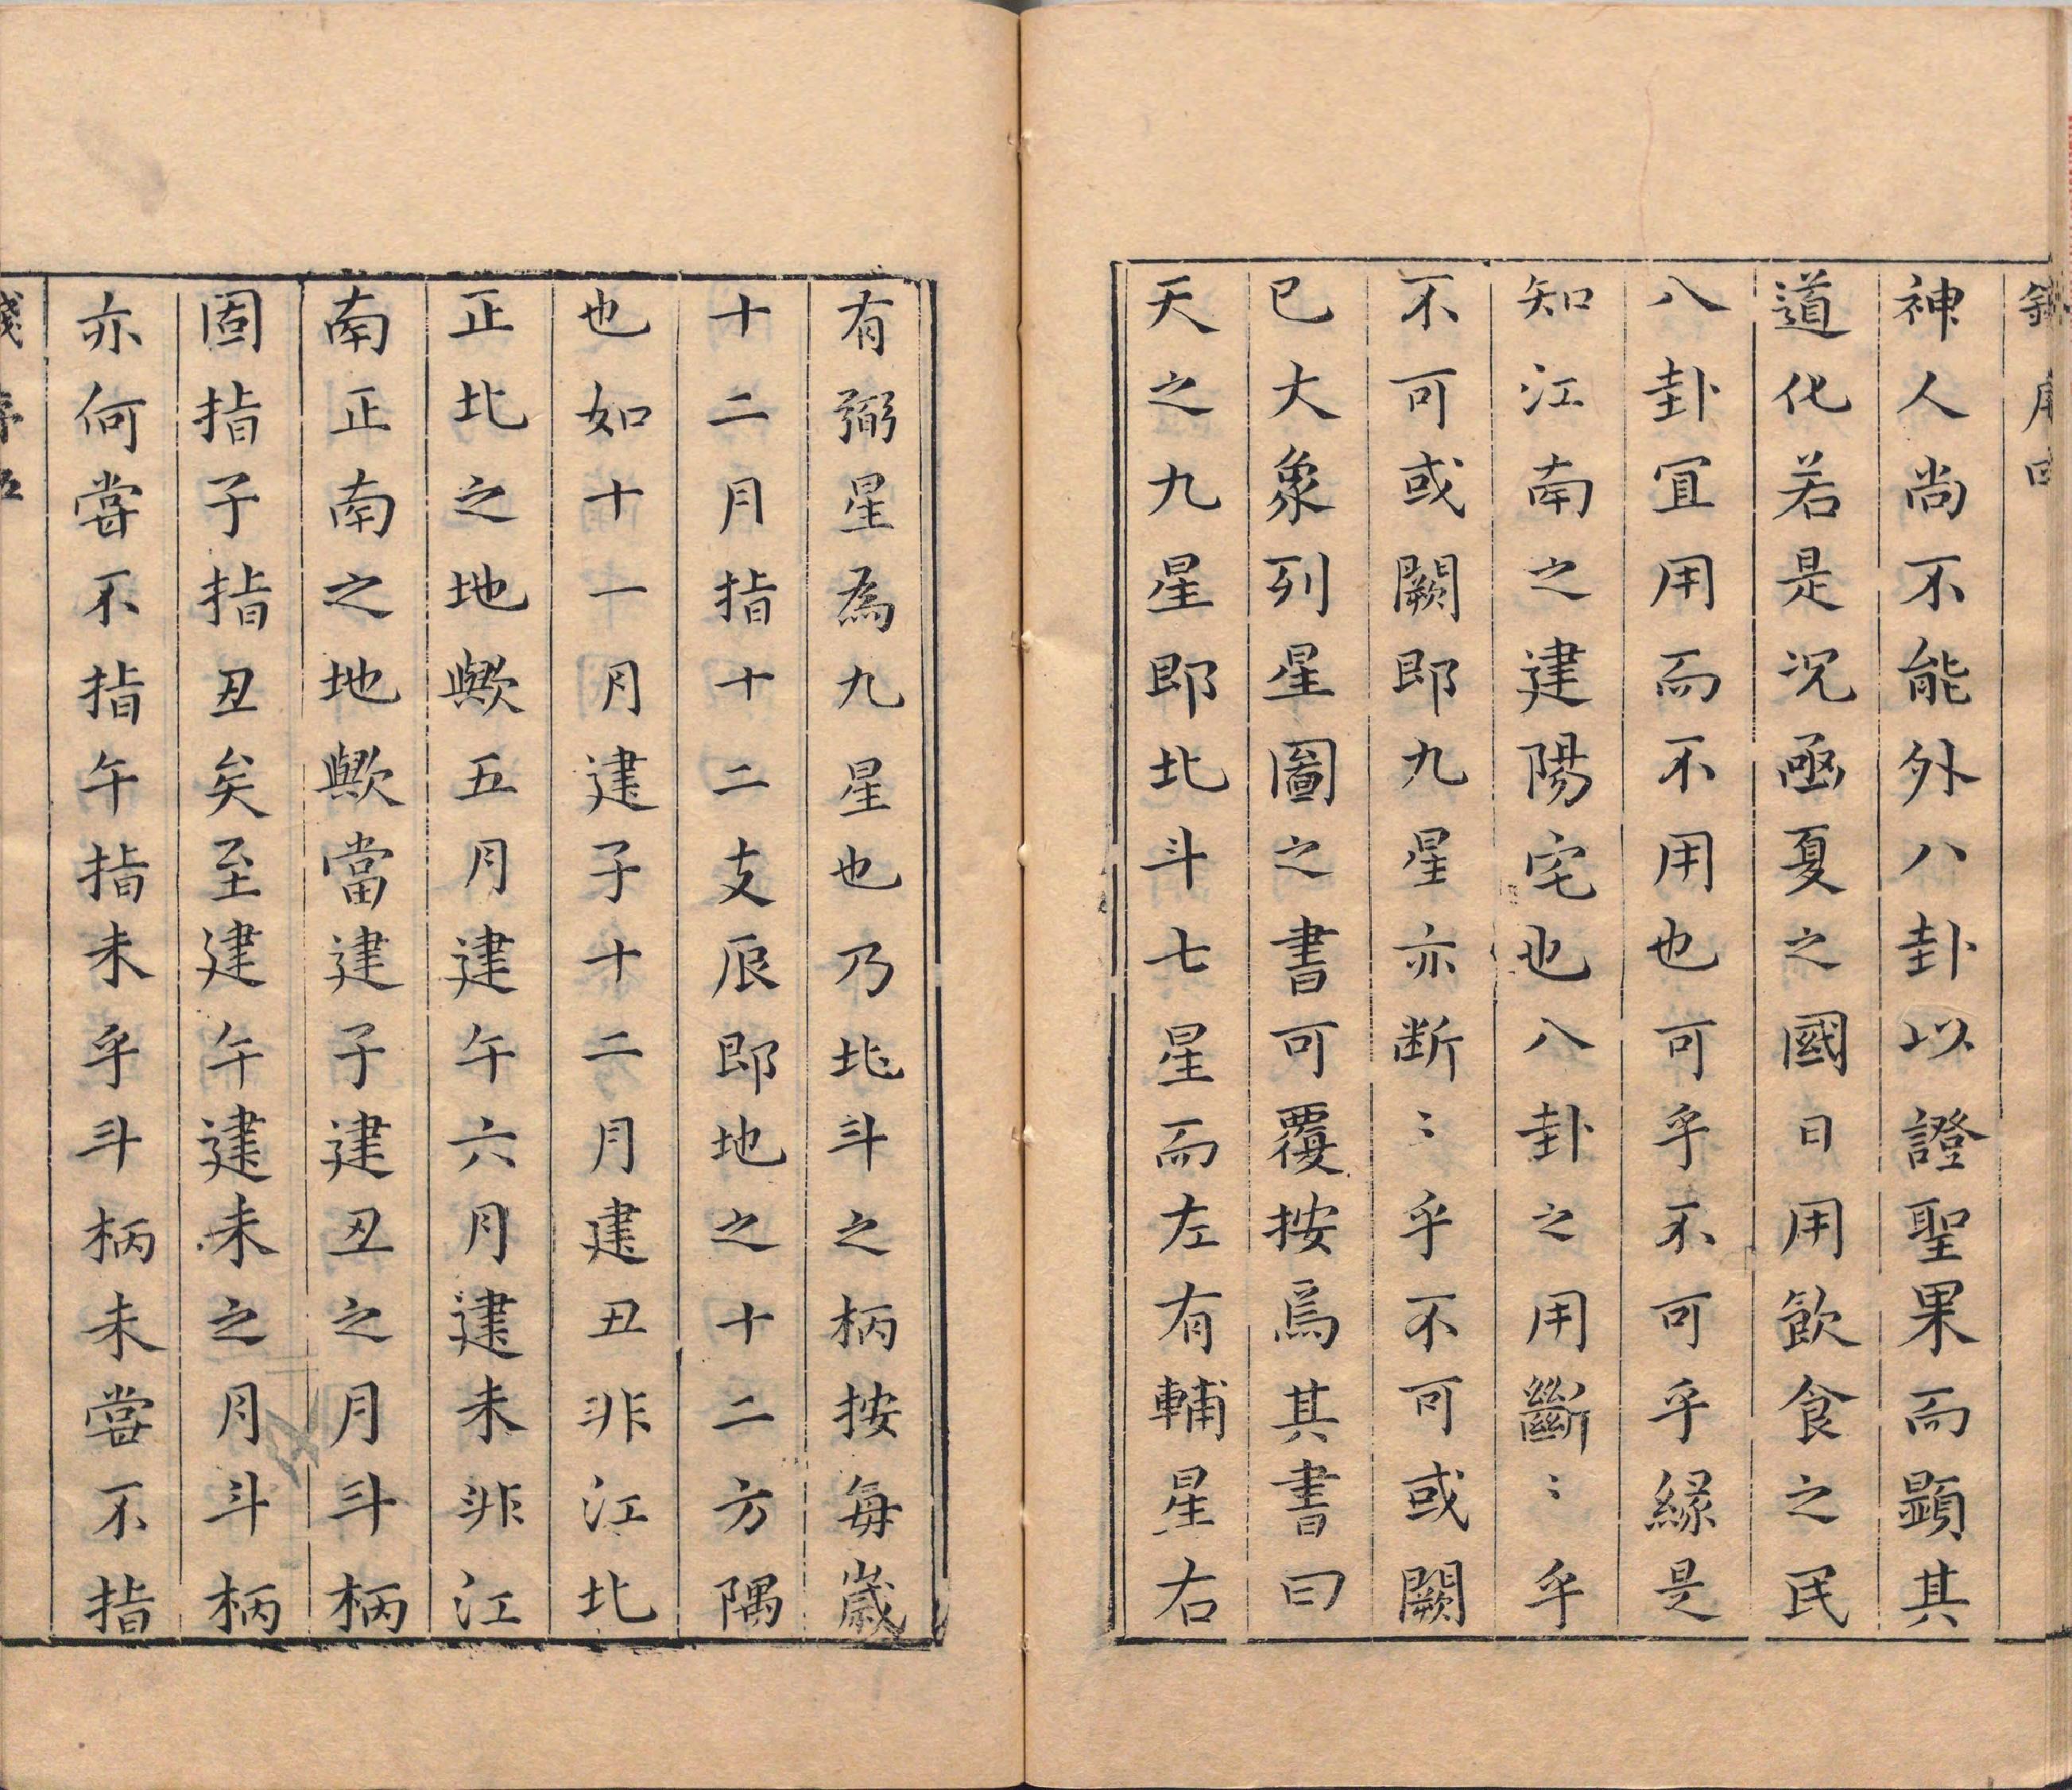 神人尚不能外八卦以證聖果而顕其
道化若是况𠅤夏之國日用飲食之民
八卦宜用而不用也可乎不可乎緣是
知江南之建陽宅也八卦之用斷⺀乎
不可或闕即九星亦断⺀乎不可或闕
已大象列星圖之書可覆按焉其書曰
天之九星即北斗七星而左有輔星右
有弼星為九星也乃北斗之柄按每嵗
十二月指十二支辰即地之十二方隅
也如十一月建子十二月建丑非江北
正北之地歟五月建午六月建未非江
南正南之地歟當建子建丑之月斗柄
固指子指丑矣至建午建未之月斗柄
亦何嘗不指午指未乎斗柄未嘗不指